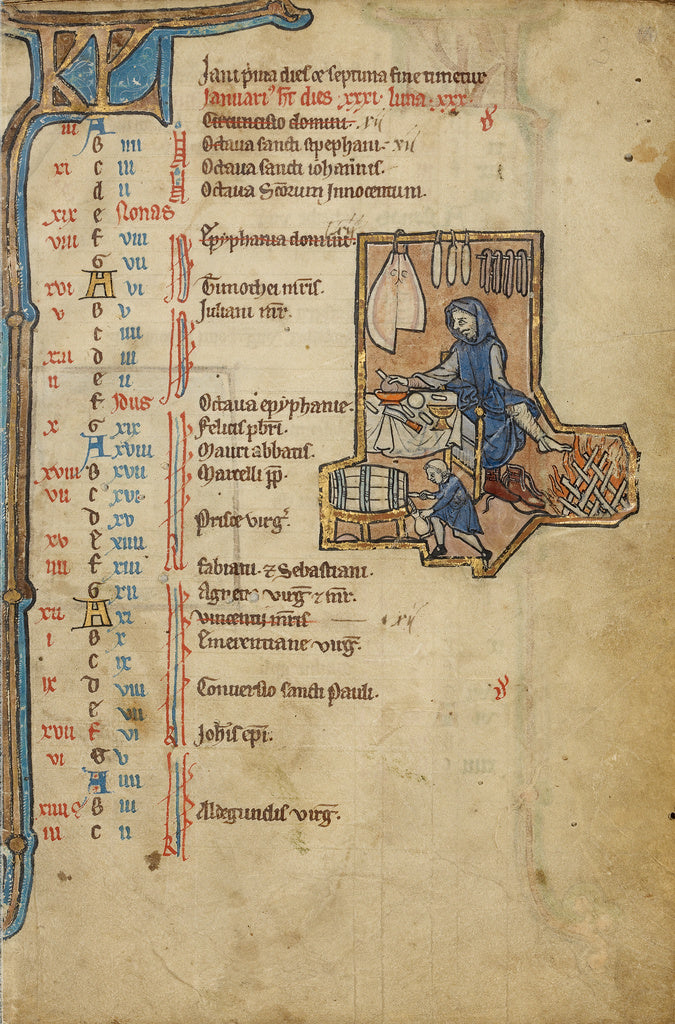 KL Jani prima dies et septima fine timetur
Januari' ht dies xxxi luna xxx
iii A Circumcisio domini. xii
B iiii Octava sancti stephani. xii
xi c iii Octava sancti iohannis.
d ii Octava Scorum Innocentum.
xix e Nonas
viii f viii Epyphania domini.
G vii
xvi A vi Timothei mris.
v B v Juliani mr.
c iiii
xiii d iii
ii e ii
f Idus Octava epyphanie.
x G xix felicis pbri.
A xviii Mauri abbatis.
xviii B xvii Marcelli pp.
vii c xvi
d xv Prisce virg.
xv e xiiii
iiii f xiii fabiani. & Sebastiani.
G xii Agnetis virg & mr.
xii A xi vincentii mris xii
i B x Emerentiane virg.
c ix
ix d viii Conversio sancti Pauli.
e vii
xvii f vi Johis epi.
vi G v
A iiii
xiiii B iii Aldegundis virg.
iii c ii